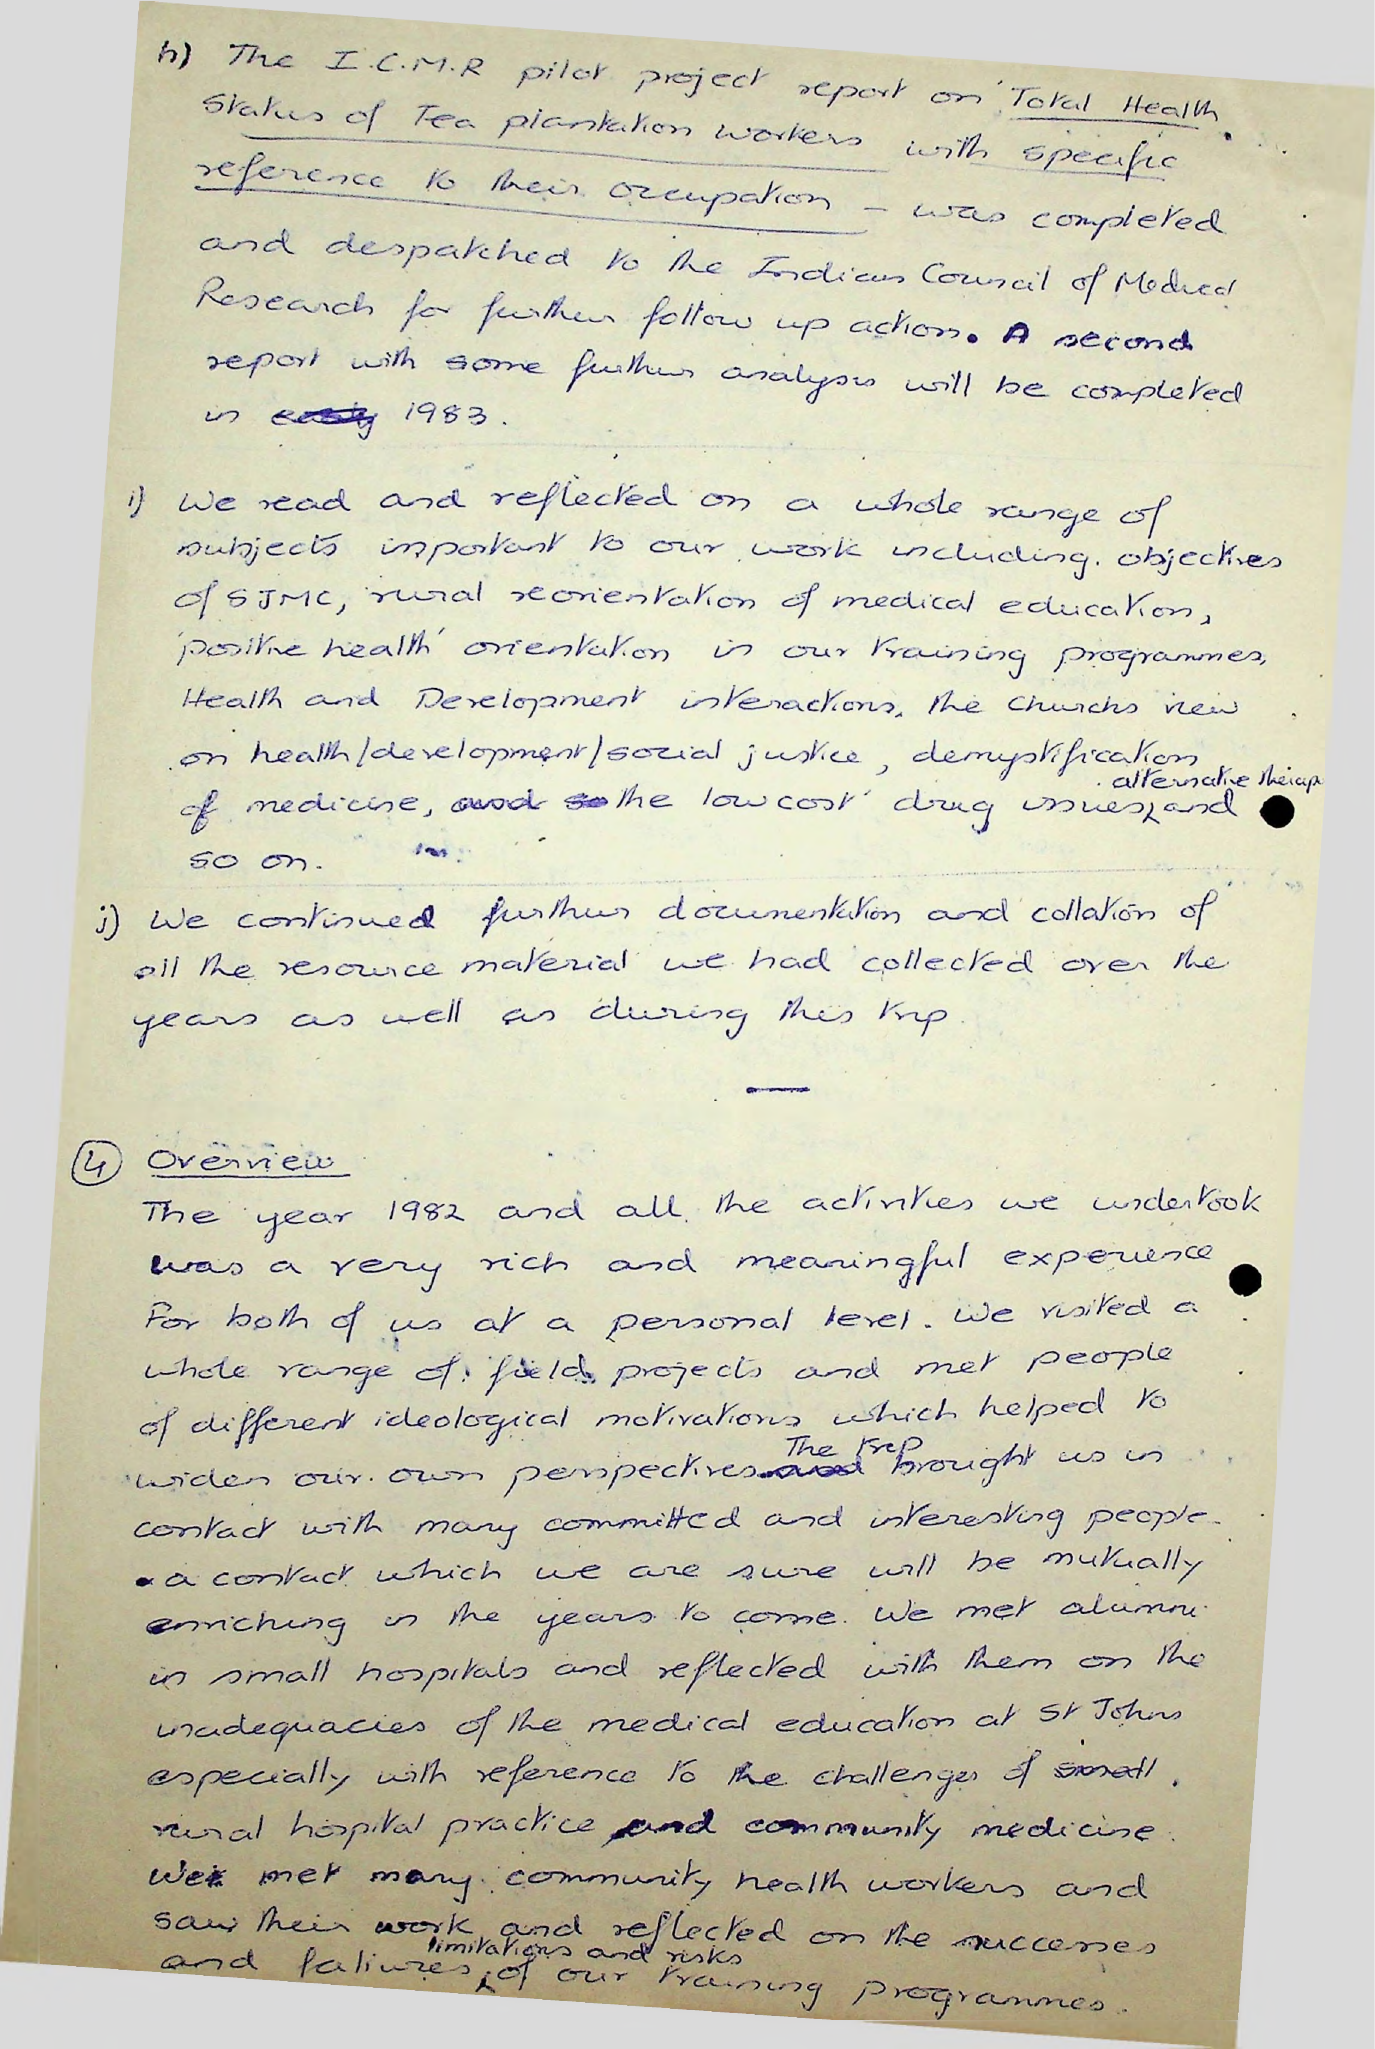 h) The I.C.M.R pilot project report on 'Total Health
Status of Tea plantation workers with specific
reference to their occupation – was completed
and despatched to the Indian Council of Medical
Research for further follow up action. A second
report with some further analysis will be completed
in early 1983.
i) We read and reflected on a whole range of
subjects important to our work including. objectives
of SJMC, rural reorientation of medical education,
'positive health' orientation in our training programmes,
Health and Development interactions, the churchs view
on health/development/social justice, demystification
alternative therapi
of medicine, and so the low cost drug issues, and
so on.
j) We continued further documentation and collation of
all the resource material we had collected over the
years as well as during this trip.
—
4 Overview
The year 1982 and all the activities we undertook
was a very rich and meaningful experience
For both of us at a personal level. We visited a
whole range of field projects and met people
of different ideological motivations which helped to
The trip
widen our own perspectives. and brought us in
contact with many committed and interesting people-
a contact which we are sure will be mutually
enriching in the years to come. We met alumni
in small hospitals and reflected with them on the
inadequacies of the medical education at St Johns
especially with reference to the challenges of small
rural hospital practice and community medicine.
We met many community health workers and
saw their work and reflected on the successes
limitations and risks
and faliures, of our training programmes.